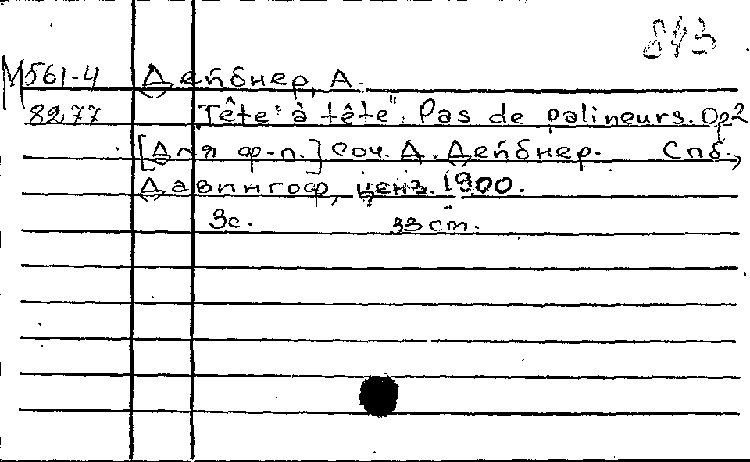 843
М561-4 Дейбнер, А.
8277 "Tête à tête". Pas de patineurs. Op2
[Для ф-п.] Соч. А. Дейбнер. Спб.,
Давингоф, ценз. 1900.
3с. 33 ст.